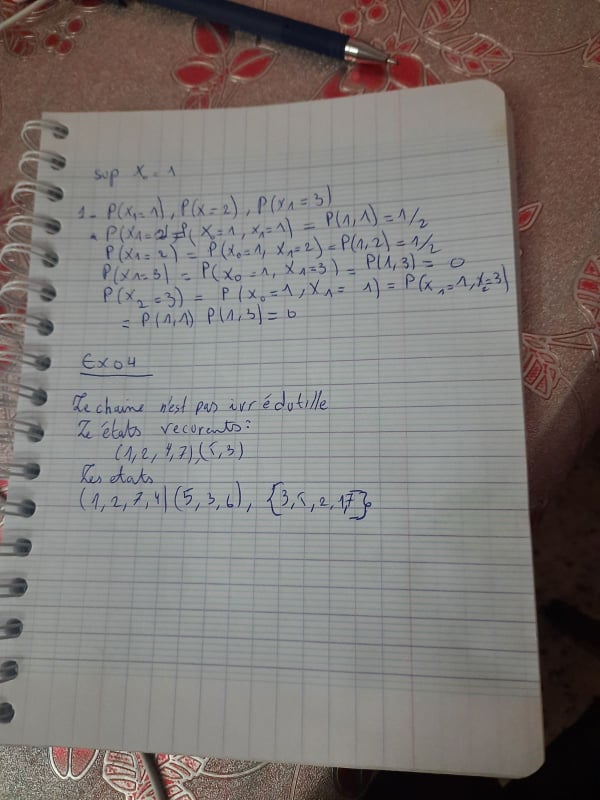 sup X₀ = 1
1- P(X₁=1), P(X=2), P(X₁=3)
P(X₁= P(X₀=1, X₁=1) = P(1,1) = 1/2
P(X₁=2) = P(X₀=1, X₁=2) = P(1,2) = 1/2
P(X₁=3) = P(X₀=1, X₁=3) = P(1,3) = 0
P(X₂=3) = P(X₀=1, X₁=1) = P(X₁=1, X₂=3)
= P(1,1) P(1,3) = 0
Exo4
Le chaine n'est pas irrédutille
Le états recorents:
(1,2,4,7),(5,3)
Les etats
(1,2,7,4) (5,3,6), {3,5,2,1,7}